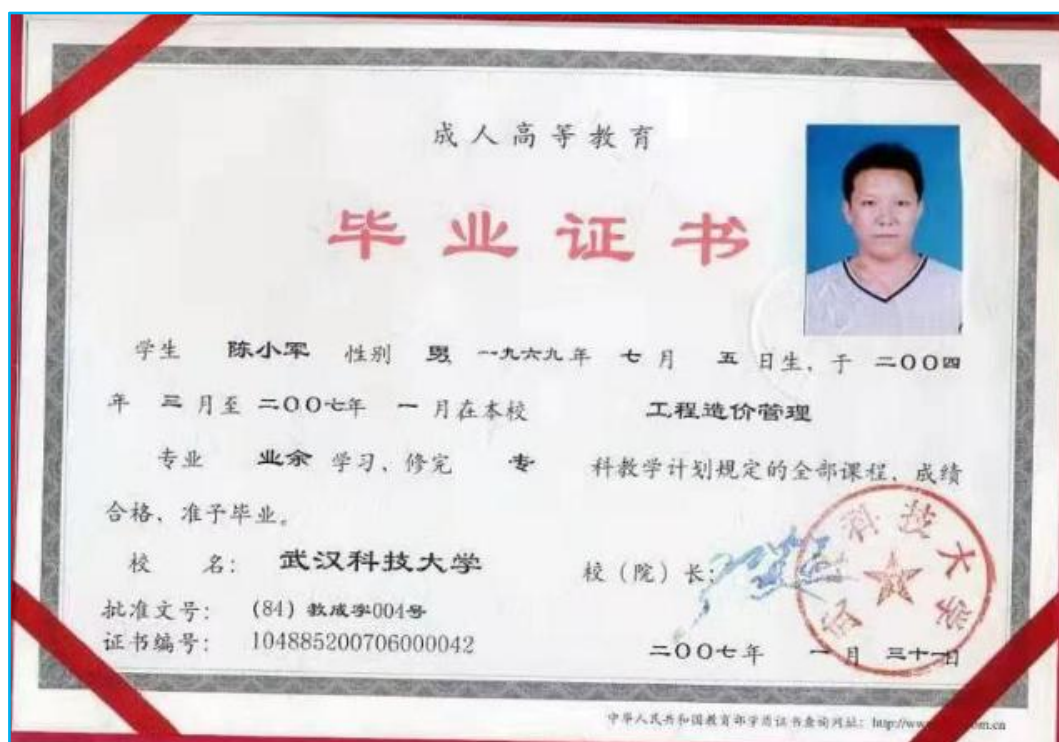 成人高等教育
毕业证书
学生 陈小军 性别 男 一九六九年 七月 五日生、于 二〇〇四
年 三月至 二〇〇七年 一月在本校 工程造价管理
专业 业余 学习、修完 专 科教学计划规定的全部课程、成绩
合格、准予毕业。
校 名： 武汉科技大学
校（院）长：
科技大学
批准文号： (84) 教成字004号
证书编号： 104885200706000042
二〇〇七年 一月 三十一日
中华人民共和国教育部学历证书查询网址： http://www